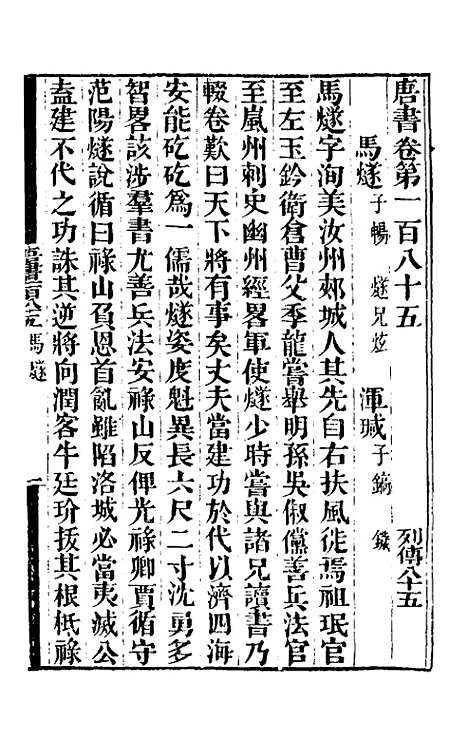 唐書卷第一百八十五 列傳八十五
馬燧 子暢 燧兄炫 渾瑊 子鎬 鐬
馬燧字洵美汝州郟城人其先自右扶風徙焉祖珉官
至左玉鈐衛倉曹父季龍嘗舉明孫吳俶儻善兵法官
至嵐州刺史幽州經畧軍使燧少時嘗與諸兄讀書乃
輟卷歎曰天下將有事矣丈夫當建功於代以濟四海
安能矻矻為一儒哉燧姿度魁異長六尺二寸沈勇多
智畧該涉羣書尤善兵法安祿山反俾光祿卿賈循守
范陽燧說循曰祿山負恩首亂雖陷洛城必當夷滅公
盍建不代之功誅其逆將向潤客牛廷玠拔其根柢祿
唐書一百八五 馬燧 一